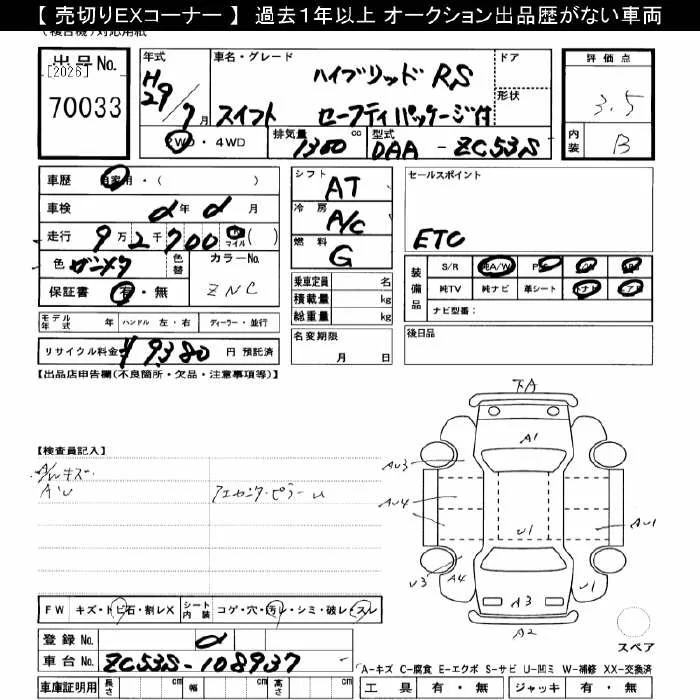 【 売切りEXコーナー 】 過去1年以上 オークション出品歴がない車両
(複合機)対応用紙
出品 No.
[2026]
70033
年式
H29/7月
車名・グレード
ハイブリッド RS
スイフト セーフティパッケージ付
ドア
形状
2WD ・ 4WD
排気量
1300 cc
型式
DAA - ZC53S
評価点
3.5
内装
B
車歴
自家用 ・ ( )
車検
年 月
走行
9万2千700 マイル ( )
色
ガンメタ
色替
カラーNo.
ZNC
保証書
有 ・ 無
モデル年式
年
ハンドル 左 ・ 右
ディーラー ・ 並行
リサイクル料金
¥9380 円 預託済
シフト
AT
冷房
A/C
燃料
G
乗車定員
名
積載量
kg
総重量
kg
名変期限
月 日
セールスポイント
ETC
装備品
S/R
純A/W
P/S
P/W
ABS
純TV
純ナビ
革シート
ナビ型番:
後日品
【出品店申告欄(不良箇所・欠品・注意事項等)】
【検査員記入】
A/Wキズ
AU
フェンダ・ピラーU
FW
キズ・トビ石・割レX
シート内装
コゲ・穴・汚レ・シミ・破レ・スレ
登録 No.
車台 No.
ZC53S-108937
車庫証明用
長さ cm
幅 cm
高さ cm
下A
A1
AU3
AU4
U1
AU1
U3
A4
A3
U1
A2
スペア
A-キズ C-腐食 E-エクボ S-サビ U-凹ミ W-補修 XX-交換済
工具 有 ・ 無
ジャッキ 有 ・ 無